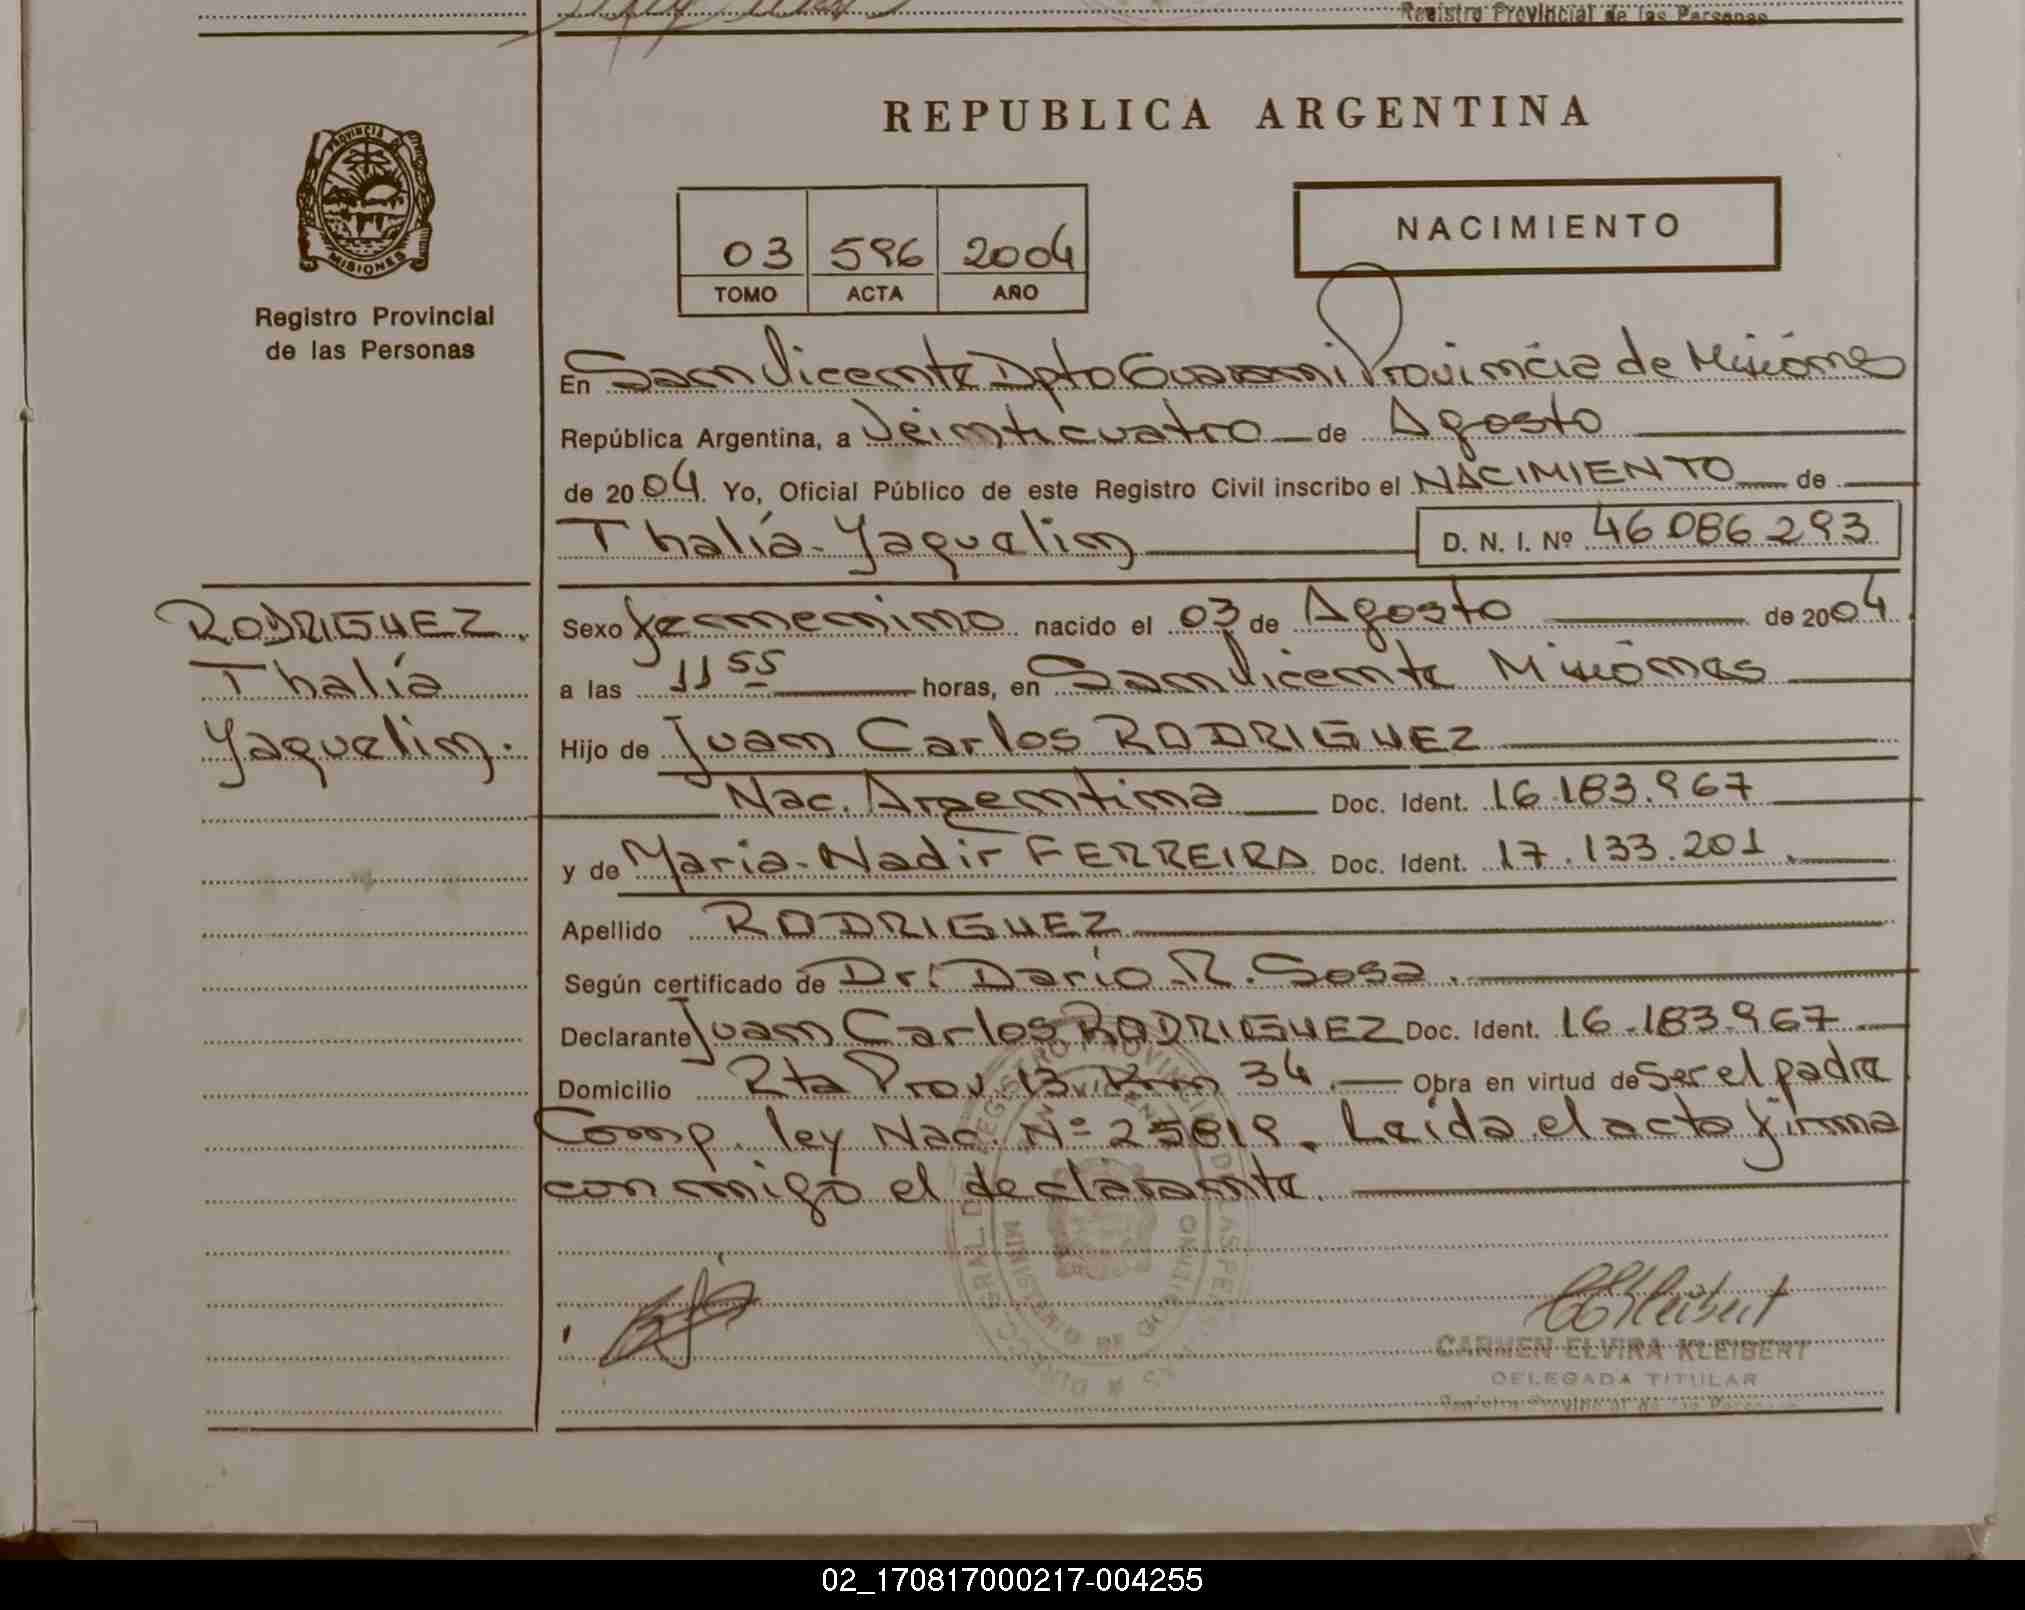 Registro Provincial de las Personas
REPUBLICA ARGENTINA
PROVINCIA DE
MISIONES
Registro Provincial
de las Personas
03 596 2004
TOMO ACTA AÑO
NACIMIENTO
En San Vicente Dpto Guarani Provincia de Misiones
República Argentina, a Veinticuatro de Agosto
de 2004. Yo, Oficial Público de este Registro Civil inscribo el NACIMIENTO de
Thalía-Yaquelin D. N. I. Nº 46086293
RODRIGUEZ
Thalía
Yaquelin.
Sexo femenino nacido el 03 de Agosto de 2004
a las 11 55 horas, en San Vicente Misiones
Hijo de Juan Carlos RODRIGUEZ
Nac. Argentina Doc. Ident. 16.183.967
y de Maria-Nadir FERREIRA Doc. Ident. 17.133.201.
Apellido RODRIGUEZ
Según certificado de Dr: Dario R. Sosa.
Declarante Juan Carlos RODRIGUEZ Doc. Ident. 16.183.967
Domicilio Rta Prov. 13 Km 34. Obra en virtud de Ser el padre
Comp. ley Nac. Nº 25819. Leída el acta firma
conmigo el declarante.
CKleibert
CARMEN ELVIRA KLEIBERT
DELEGADA TITULAR
Registro Provincial de las Personas
02_170817000217-004255